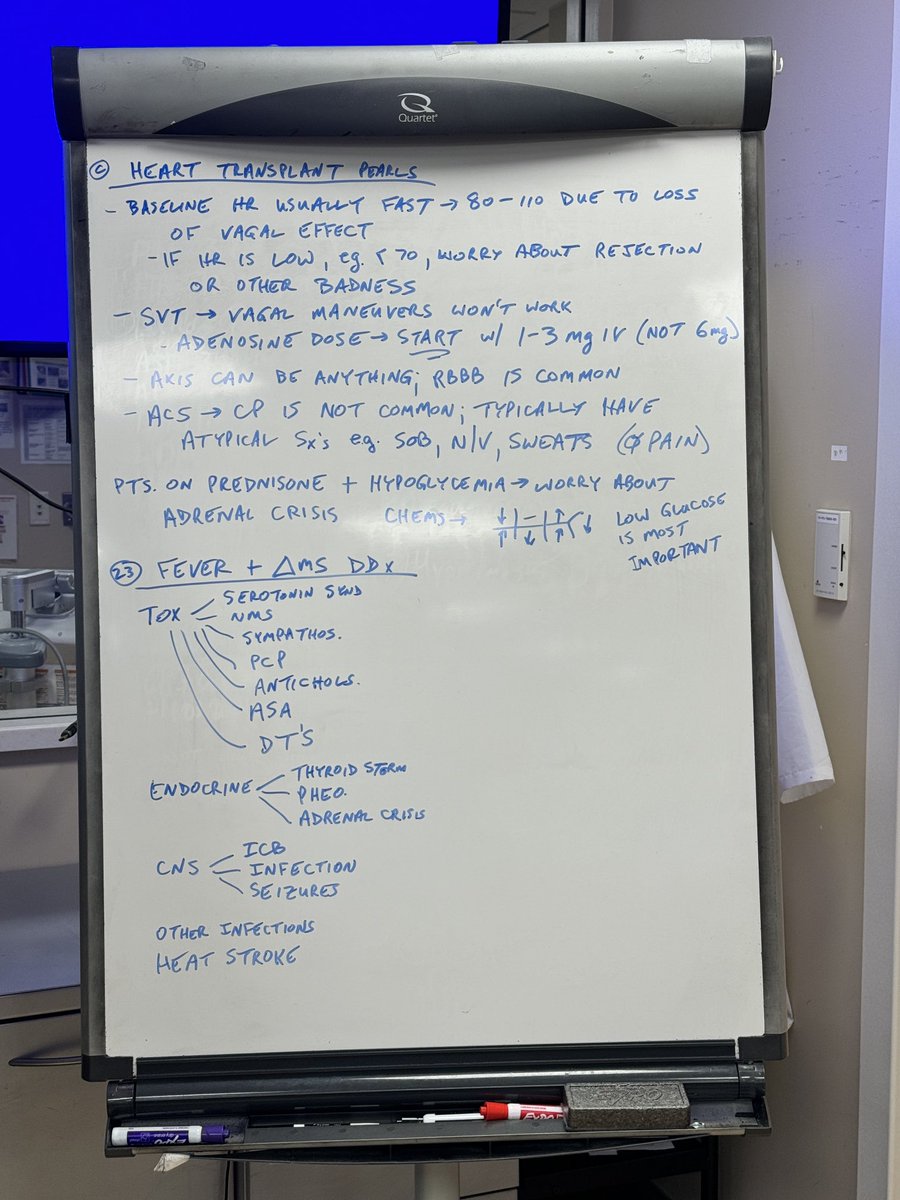 Quartet
Ⓒ HEART TRANSPLANT PEARLS
- BASELINE HR USUALLY FAST → 80-110 DUE TO LOSS
OF VAGAL EFFECT
- IF HR IS LOW, eg. < 70, WORRY ABOUT REJECTION
OR OTHER BADNESS
- SVT → VAGAL MANEUVERS WON'T WORK
- ADENOSINE DOSE → START w/ 1-3 mg IV (NOT 6mg)
- AXIS CAN BE ANYTHING; RBBB IS COMMON
- ACS → CP IS NOT COMMON; TYPICALLY HAVE
ATYPICAL Sx's eg. SOB, N/V, SWEATS (∅ PAIN)
PTS. ON PREDNISONE + HYPOGLYCEMIA → WORRY ABOUT
ADRENAL CRISIS CHEMS → ↓ - ↑ ↑ ↓ ↑ ↓ LOW GLUCOSE
IS MOST
IMPORTANT
㉓ FEVER + ΔMS DDx
TOX SEROTONIN SYND
NMS
SYMPATHOS.
PCP
ANTICHOLS.
ASA
DT'S
ENDOCRINE THYROID STORM
PHEO.
ADRENAL CRISIS
CNS ICB
INFECTION
SEIZURES
OTHER INFECTIONS
HEAT STROKE
EXPO
EXPO